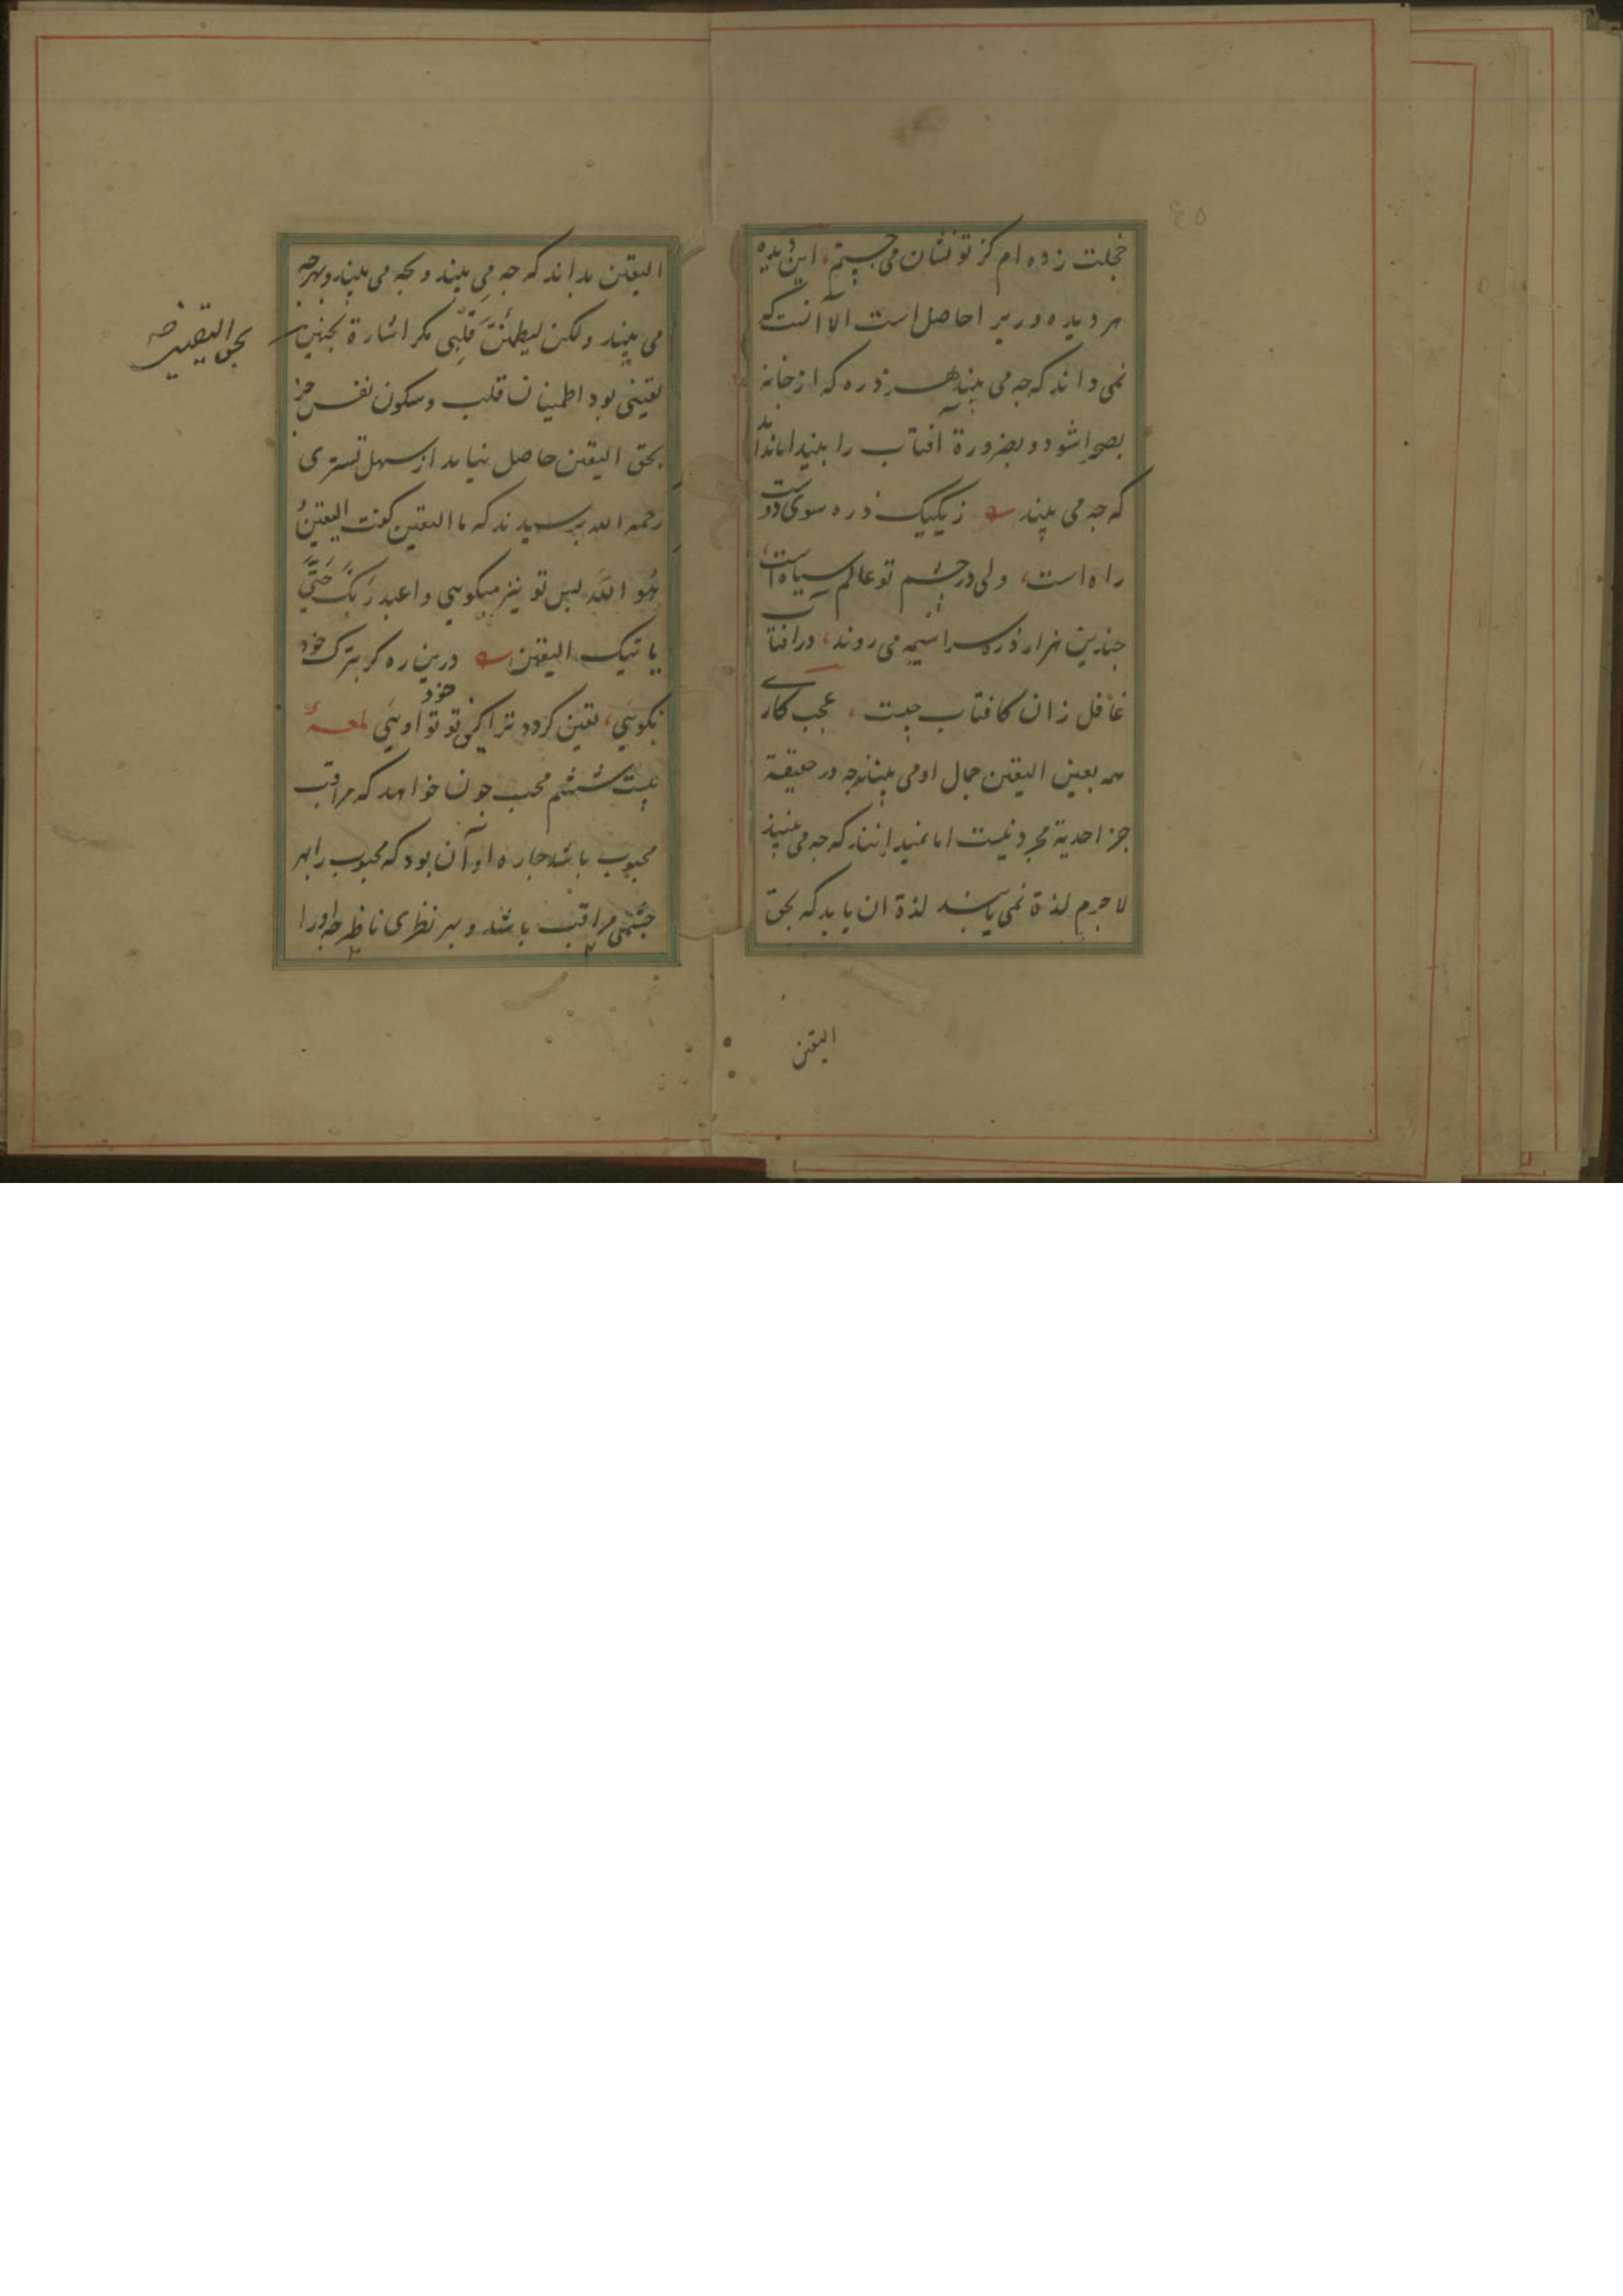 ٤٥
خجلت زده ام کز تو نشان می جستم، این دیده
هر دیده ور را حاصل است الا آنست که
نمی داند که چه می بیند هر ذره که از خانه
بصحرا شود و بضرورة آفتاب را بیند اما نداند
که چه می بیند زیکیک ذره سوی دوست
راه است، ولی در چشم تو عالم سیاه است،
چندین هزار ذره سراسیمه می روند، در آفتاب
غافل زان کافتاب چیست، عجب کاری
همه بعین الیقین جمال او می بینند چه در حقیقة
جز احدیة مجرد نیست اما نمیدانند که چه می بینند
لا جرم لذة نمی یابند لذة ان یابد که بحق
الیقین
الیقین بداند که چه می بیند و بچه می بیند و بهر چه
می بیند ولکن لیطمئنّ قلبی مگر اشارة بچنین
بحق الیقین
یقینی بود اطمینان قلب و سکون نفس جز
بحق الیقین حاصل نیاید از سهل تستری
رحمه الله پرسیدند که ما الیقین گفت الیقینُ
هُو اللّه پس تو نیز میگویی واعبد رَبکَ حَتَّی
یاتیک الیقین درین ره گر بترک خود
بگویی، یقین گردد ترا کین تو تو اویی لمعهٔ
خود
بیست ششم محب چون خواهد که مراقب
محبوب باشد چاره او آن بود که محبوب را بهر
چشمی مراقب باشد و بهر نظری ناظر چه او را